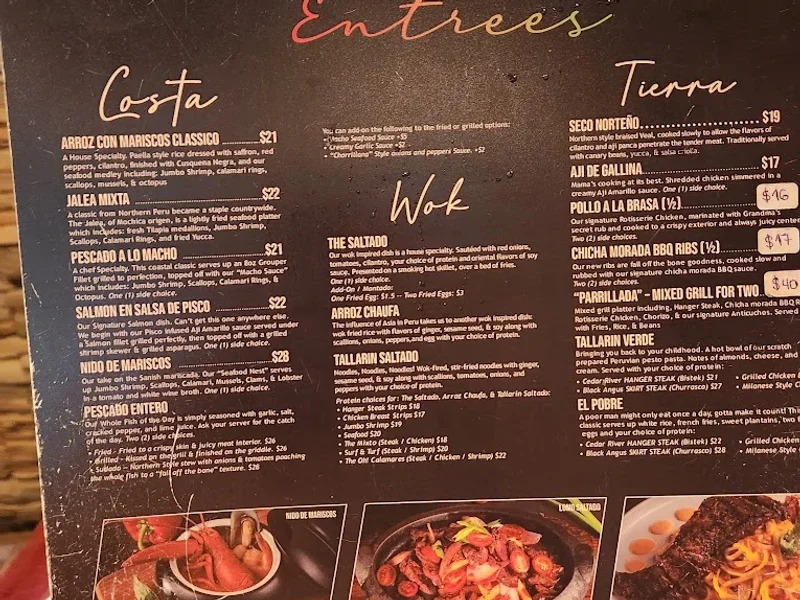 Entrees
Costa
ARROZ CON MARISCOS CLASSICO ............ $21
A House Specialty. Paella style rice dressed with saffron, red
peppers, cilantro, finished with Cusquena Negra, and our
seafood medley including: Jumbo Shrimp, calamari rings,
scallops, mussels, & octopus
JALEA MIXTA ............ $22
A classic from Northern Peru became a staple countrywide.
The Jalea, of Mochica origen, is a lightly fried seafood platter
which includes: fresh Tilapia medallions, Jumbo Shrimp,
Scallops, Calamari Rings, and fried Yucca.
PESCADO A LO MACHO ............ $21
A chef Specialty. This coastal classic serves up an 8oz Grouper
Fillet grilled to perfection, topped off with our "Macho Sauce"
which includes: Jumbo Shrimp, Scallops, Calamari Rings, &
Octopus. One (1) side choice.
SALMON EN SALSA DE PISCO ............ $22
Our Signature Salmon dish. Can't get this one anywhere else.
We begin with our Pisco infused Aji Amarillo sauce served under
a Salmon fillet grilled perfectly, then topped off with a grilled
shrimp skewer & grilled asparagus. One (1) side choice.
NIDO DE MARISCOS ............ $28
Our take on the Sanish mariscada. Our "Seafood Nest" serves
up Jumbo Shrimp, Scallops, Calamari, Mussels, Clams, & Lobster
in a tomato and white wine broth. One (1) side choice.
PESCADO ENTERO
Our Whole Fish of the Day is simply seasoned with garlic, salt,
cracked pepper, and lime juice. Ask your server for the catch
of the day. Two (2) side choices.
- Fried - Fried to a crispy skin & juicy meat interior. $26
- Grilled - Kissed on the grill & finished on the griddle. $26
- Sudado - Northern Style stew with onions & tomatoes poaching
the whole fish to a "fall off the bone" texture. $28
You can add-on the following to the fried or grilled options:
• Macho Seafood Sauce +$5
• Creamy Garlic Sauce +$2
• "Chorrillana" Style onions and peppers Sauce. +$2
Wok
THE SALTADO
Our wok inspired dish is a house specialty. Sautéed with red onions,
tomatoes, cilantro, your choice of protein and oriental flavors of soy
sauce. Presented on a smoking hot skillet, over a bed of fries.
One (1) side choice.
Add-On / Montado:
One Fried Egg: $1.5 -- Two Fried Eggs: $3
ARROZ CHAUFA
The influence of Asia in Peru takes us to another wok inspired dish:
wok fried rice with flavors of ginger, sesame seed, & soy along with
scallions, onions, peppers, and egg with your choice of protein.
TALLARIN SALTADO
Noodles, Noodles, Noodles! Wok-fired, stir-fried noodles with ginger,
sesame seed, & soy along with scallions, tomatoes, onions, and
peppers with your choice of protein.
Protein choices for: The Saltado, Arroz Chaufa, & Tallarin Saltado:
• Hanger Steak Strips $18
• Chicken Breast Strips $17
• Jumbo Shrimp $19
• Seafood $20
• The Mixto (Steak / Chicken) $18
• Surf & Turf (Steak / Shrimp) $20
• The Oh! Calamares (Steak / Chicken / Shrimp) $22
Tierra
SECO NORTEÑO ............ $19
Northern style braised Veal, cooked slowly to allow the flavors of
cilantro and aji panca penetrate the tender meat. Traditionally served
with canary beans, yucca, & salsa criolla.
AJI DE GALLINA ............ $17
Mama's cooking at its best. Shredded chicken simmered in a
creamy Aji Amarillo sauce. One (1) side choice.
POLLO A LA BRASA (½) $16
Our signature Rotisserie Chicken, marinated with Grandma's
secret rub and cooked to a crispy exterior and always juicy center
Two (2) side choices.
CHICHA MORADA BBQ RIBS (½) $17
Our new ribs are fall off the bone goodness, cooked slow and
rubbed with our signature chicha morada BBQ sauce.
Two (2) side choices.
"PARRILLADA" - MIXED GRILL FOR TWO $40
Mixed grill platter including, Hanger Steak, Chicha morada BBQ R
Rotisserie Chicken, Chorizo, & our signature Anticuchos. Served
with Fries, Rice, & Beans
TALLARIN VERDE
Bringing you back to your childhood. A hot bowl of our scratch
prepared Peruvian pesto pasta. Notes of almonds, cheese, and
cream. Served with your choice of protein:
• Cedar River HANGER STEAK (Bistek) $21
• Black Angus SKIRT STEAK (Churrasco) $27
• Grilled Chicken
• Milanese Style C
EL POBRE
A poor man might only eat once a day, gotta make it count! This
classic serves up white rice, french fries, sweet plantains, two f
eggs and your choice of protein:
• Cedar River HANGER STEAK (Bistek) $22
• Black Angus SKIRT STEAK (Churrasco) $28
• Grilled Chicken
• Milanese Style
NIDO DE MARISCOS
LOMO SALTADO